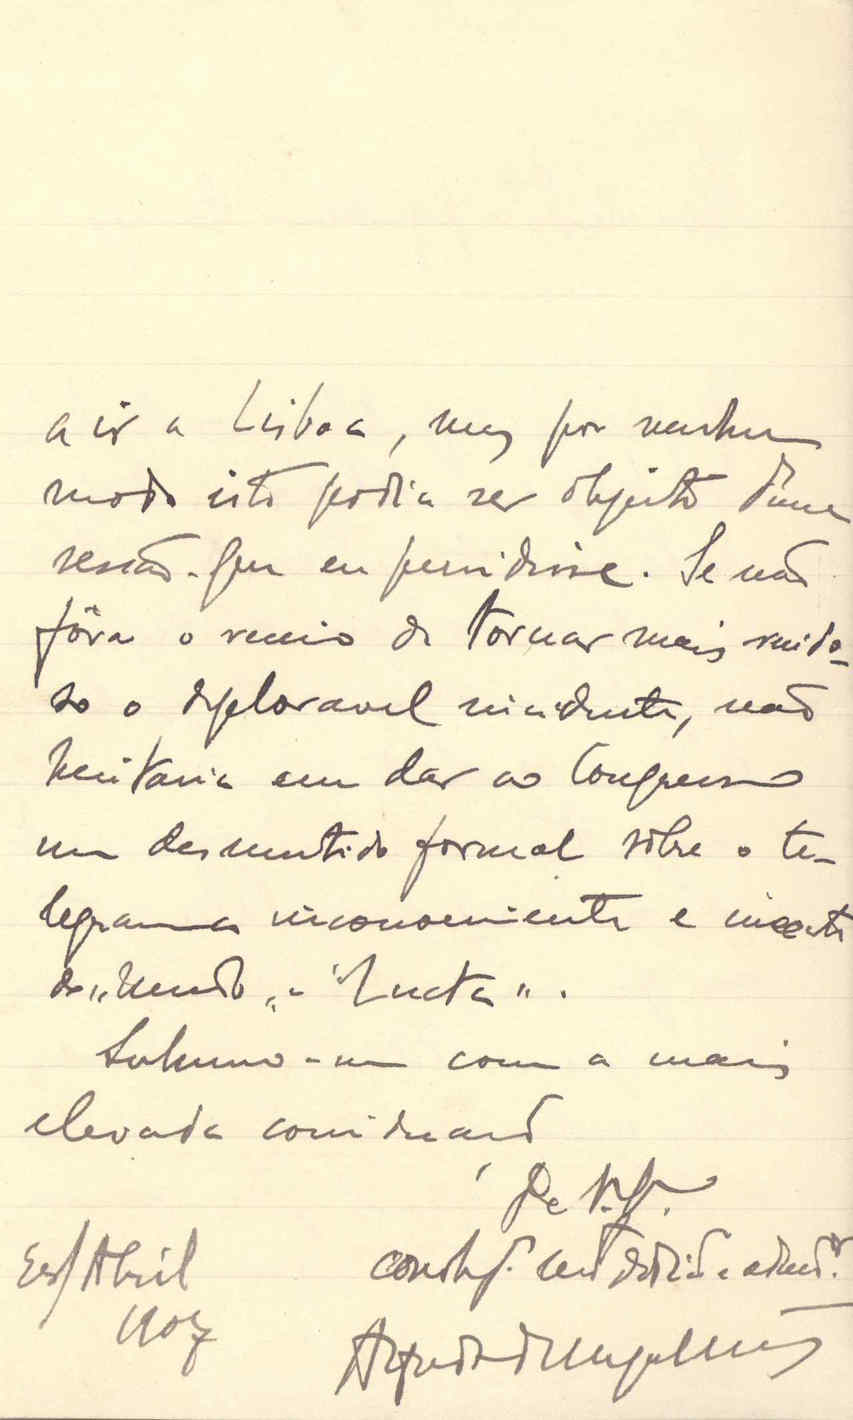 a ir a Lisboa, mas por nenhum
modo isto podia ser objecto d'uma
sessão que eu presidisse. Se não
fôra o receio de tornar mais ruido-
so o deploravel incidente, não
hesitaria em dar ao Congresso
um desmentido formal sôbre o te-
legramma inconveniente e
do "Mundo" e "Lucta".
Subscrevo-me com a mais
elevada consideração
De V. Ex.
e adm.or
Abril
1907
Alfredo de Magalhães